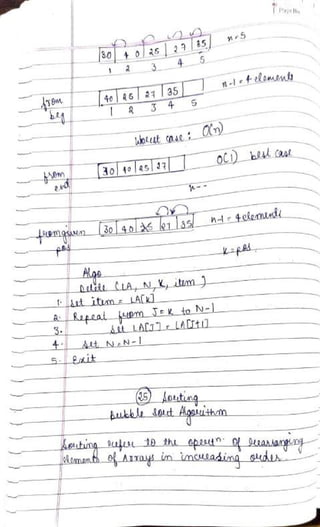 Page No.
30 | 40 | 25 | 27 | 35 n=5
1 2 3 4 5
from beg 40 | 25 | 27 | 35 | n-1 = 4 elements
1 2 3 4 5
Worst case : O(n)
from end 30 | 40 | 25 | 27 | O(1) best case
n--
from given pos 30 | 40 | 25 | 27 | 35 n-1 = 4 elements
k = pos.
Algo
Delete (LA, N, K, item)
1. Set item = LA[K]
2. Repeat from J=K to N-1
3. Set LA[J] = LA[J+1]
4. Set N=N-1
5. Exit
25 Sorting
Bubble Sort Algorithm
Sorting refer to the opertn. of rearranging
elements of Arrays in increasing order.